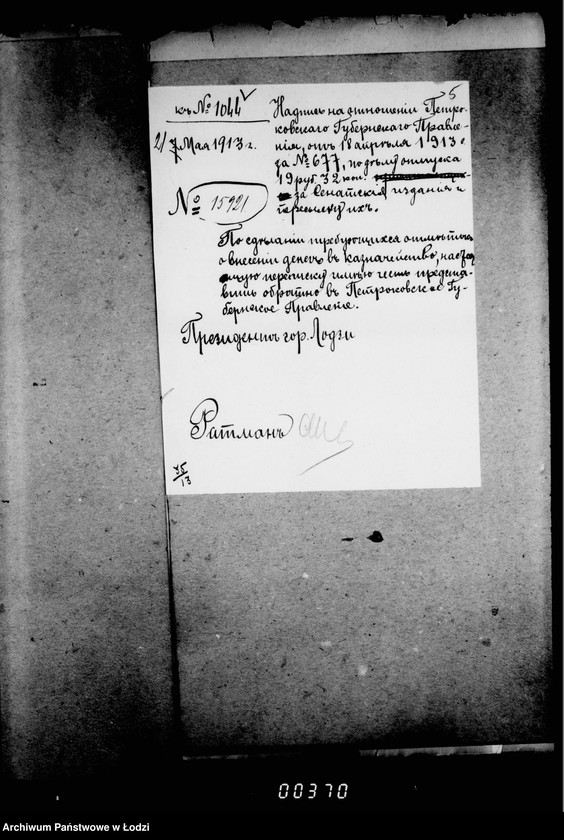 5
къ № 1044
2/7 Мая 1913 г.
№ 15921
Надпись на отношении Петро-
ковскаго Губернскаго Правле-
нія, отъ 18 апрѣля 1913 г.
за № 677, по дѣлу отпуска
19 руб. 32 коп.
за Сенатскія изданія и
пересылку ихъ.
По сдѣланіи требующихся отмѣтокъ
о внесеніи денегъ въ казначейство, настоя
щую переписку имѣю честь предста-
вить обратно въ Петроковское Гу-
бернское Правленіе.
Президентъ гор. Лодзи
Ратманъ
75/13
00370
Archiwum Państwowe w Łodzi